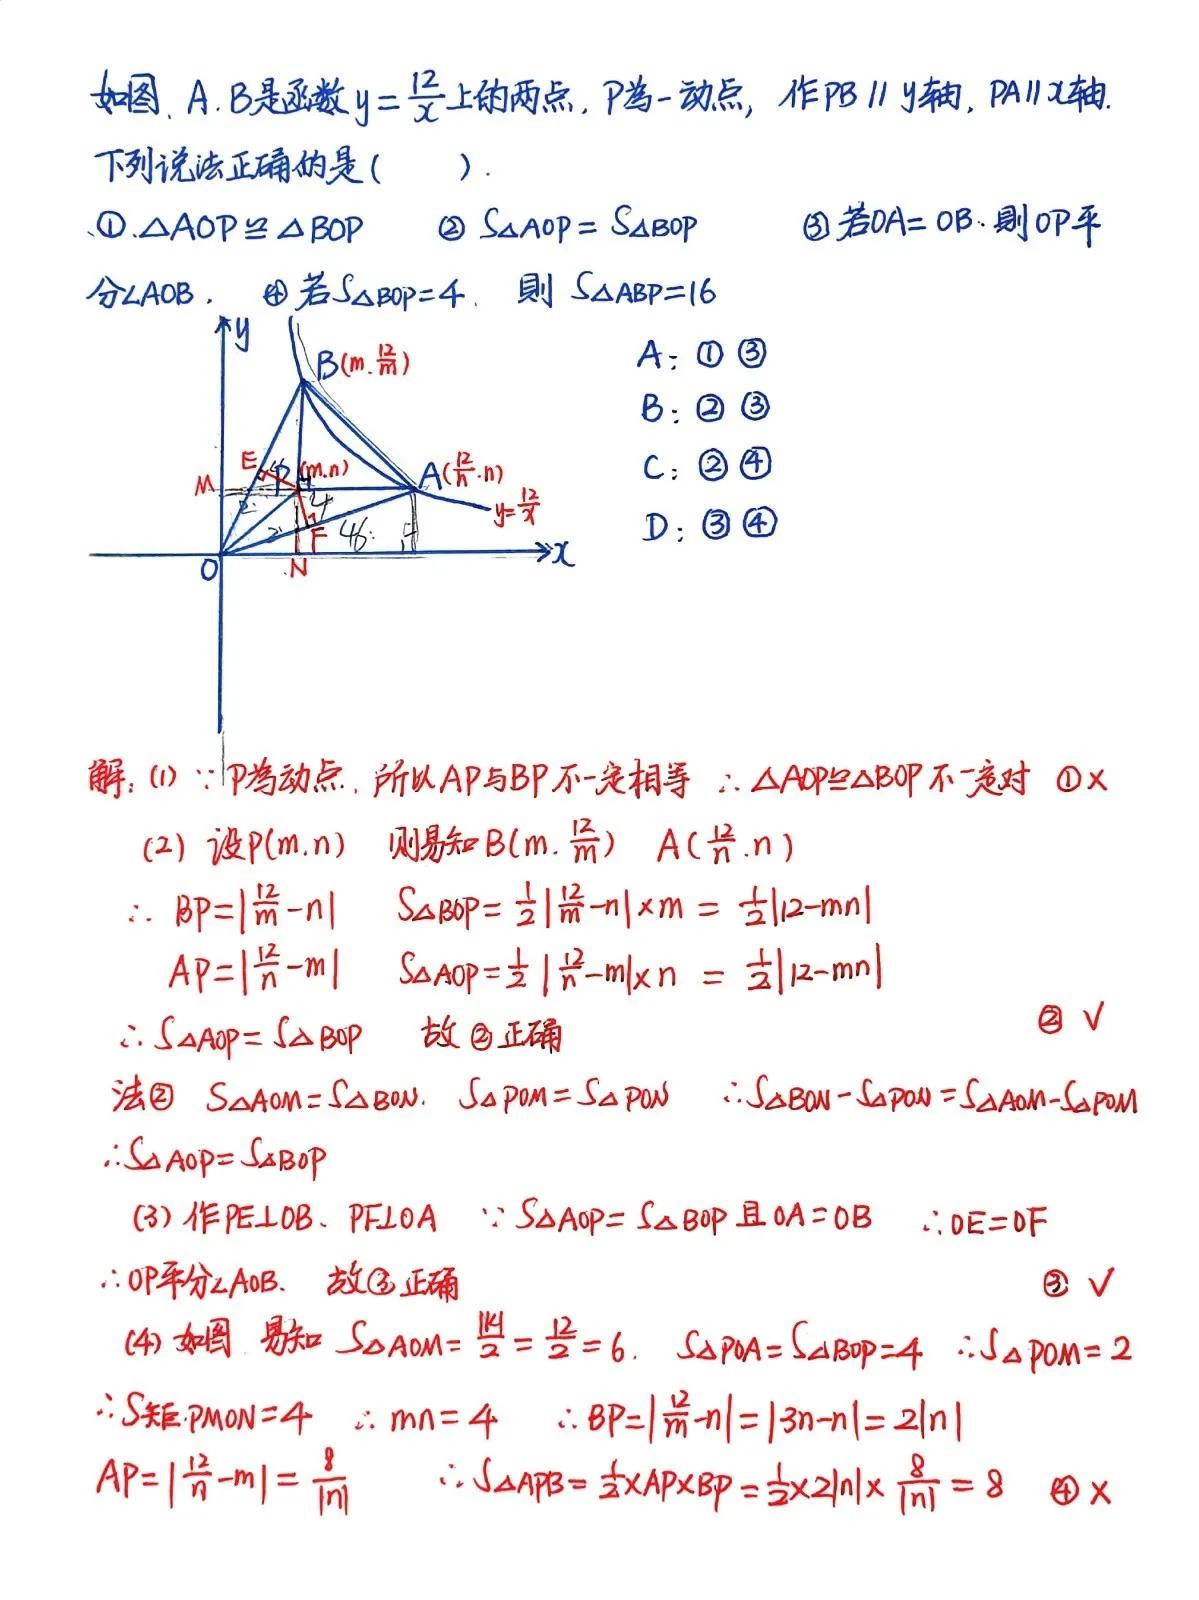 如图、A.B是函数y=12/x上的两点,P为一动点,作PB∥y轴,PA∥x轴.
下列说法正确的是( ).
①.△AOP≌△BOP ② S△AOP=S△BOP ③若OA=OB.则OP平
分∠AOB. ④若S△BOP=4. 则 S△ABP=16
y
B(m.12/m)
A:①③
B:②③
E
P
(m.n)
A(12/n.n)
C:②④
M
y=12/x
D:③④
F
O
N
x
解:(1)∵P为动点.所以AP与BP不一定相等 ∴△AOP≌△BOP不一定对 ①×
(2)设P(m.n) 则易知B(m.12/m) A(12/n.n)
∴BP=|12/m-n| S△BOP=1/2|12/m-n|×m=1/2|12-mn|
AP=|12/n-m| S△AOP=1/2|12/n-m|×n=1/2|12-mn|
∴S△AOP=S△BOP 故②正确 ②√
法② S△AOM=S△BON. S△POM=S△PON ∴S△BON-S△PON=S△AOM-S△POM
∴S△AOP=S△BOP
(3)作PE⊥OB、PF⊥OA ∵S△AOP=S△BOP且OA=OB ∴OE=OF
∴OP平分∠AOB. 故③正确 ③√
(4)如图 易知 S△AOM=|k|/2=12/2=6. S△POA=S△BOP=4 ∴S△POM=2
∴S矩PMON=4 ∴mn=4 ∴BP=|12/m-n|=|3n-n|=2|n|
AP=|12/n-m|=8/|n| ∴S△APB=1/2×AP×BP=1/2×2|n|×8/|n|=8 ④×